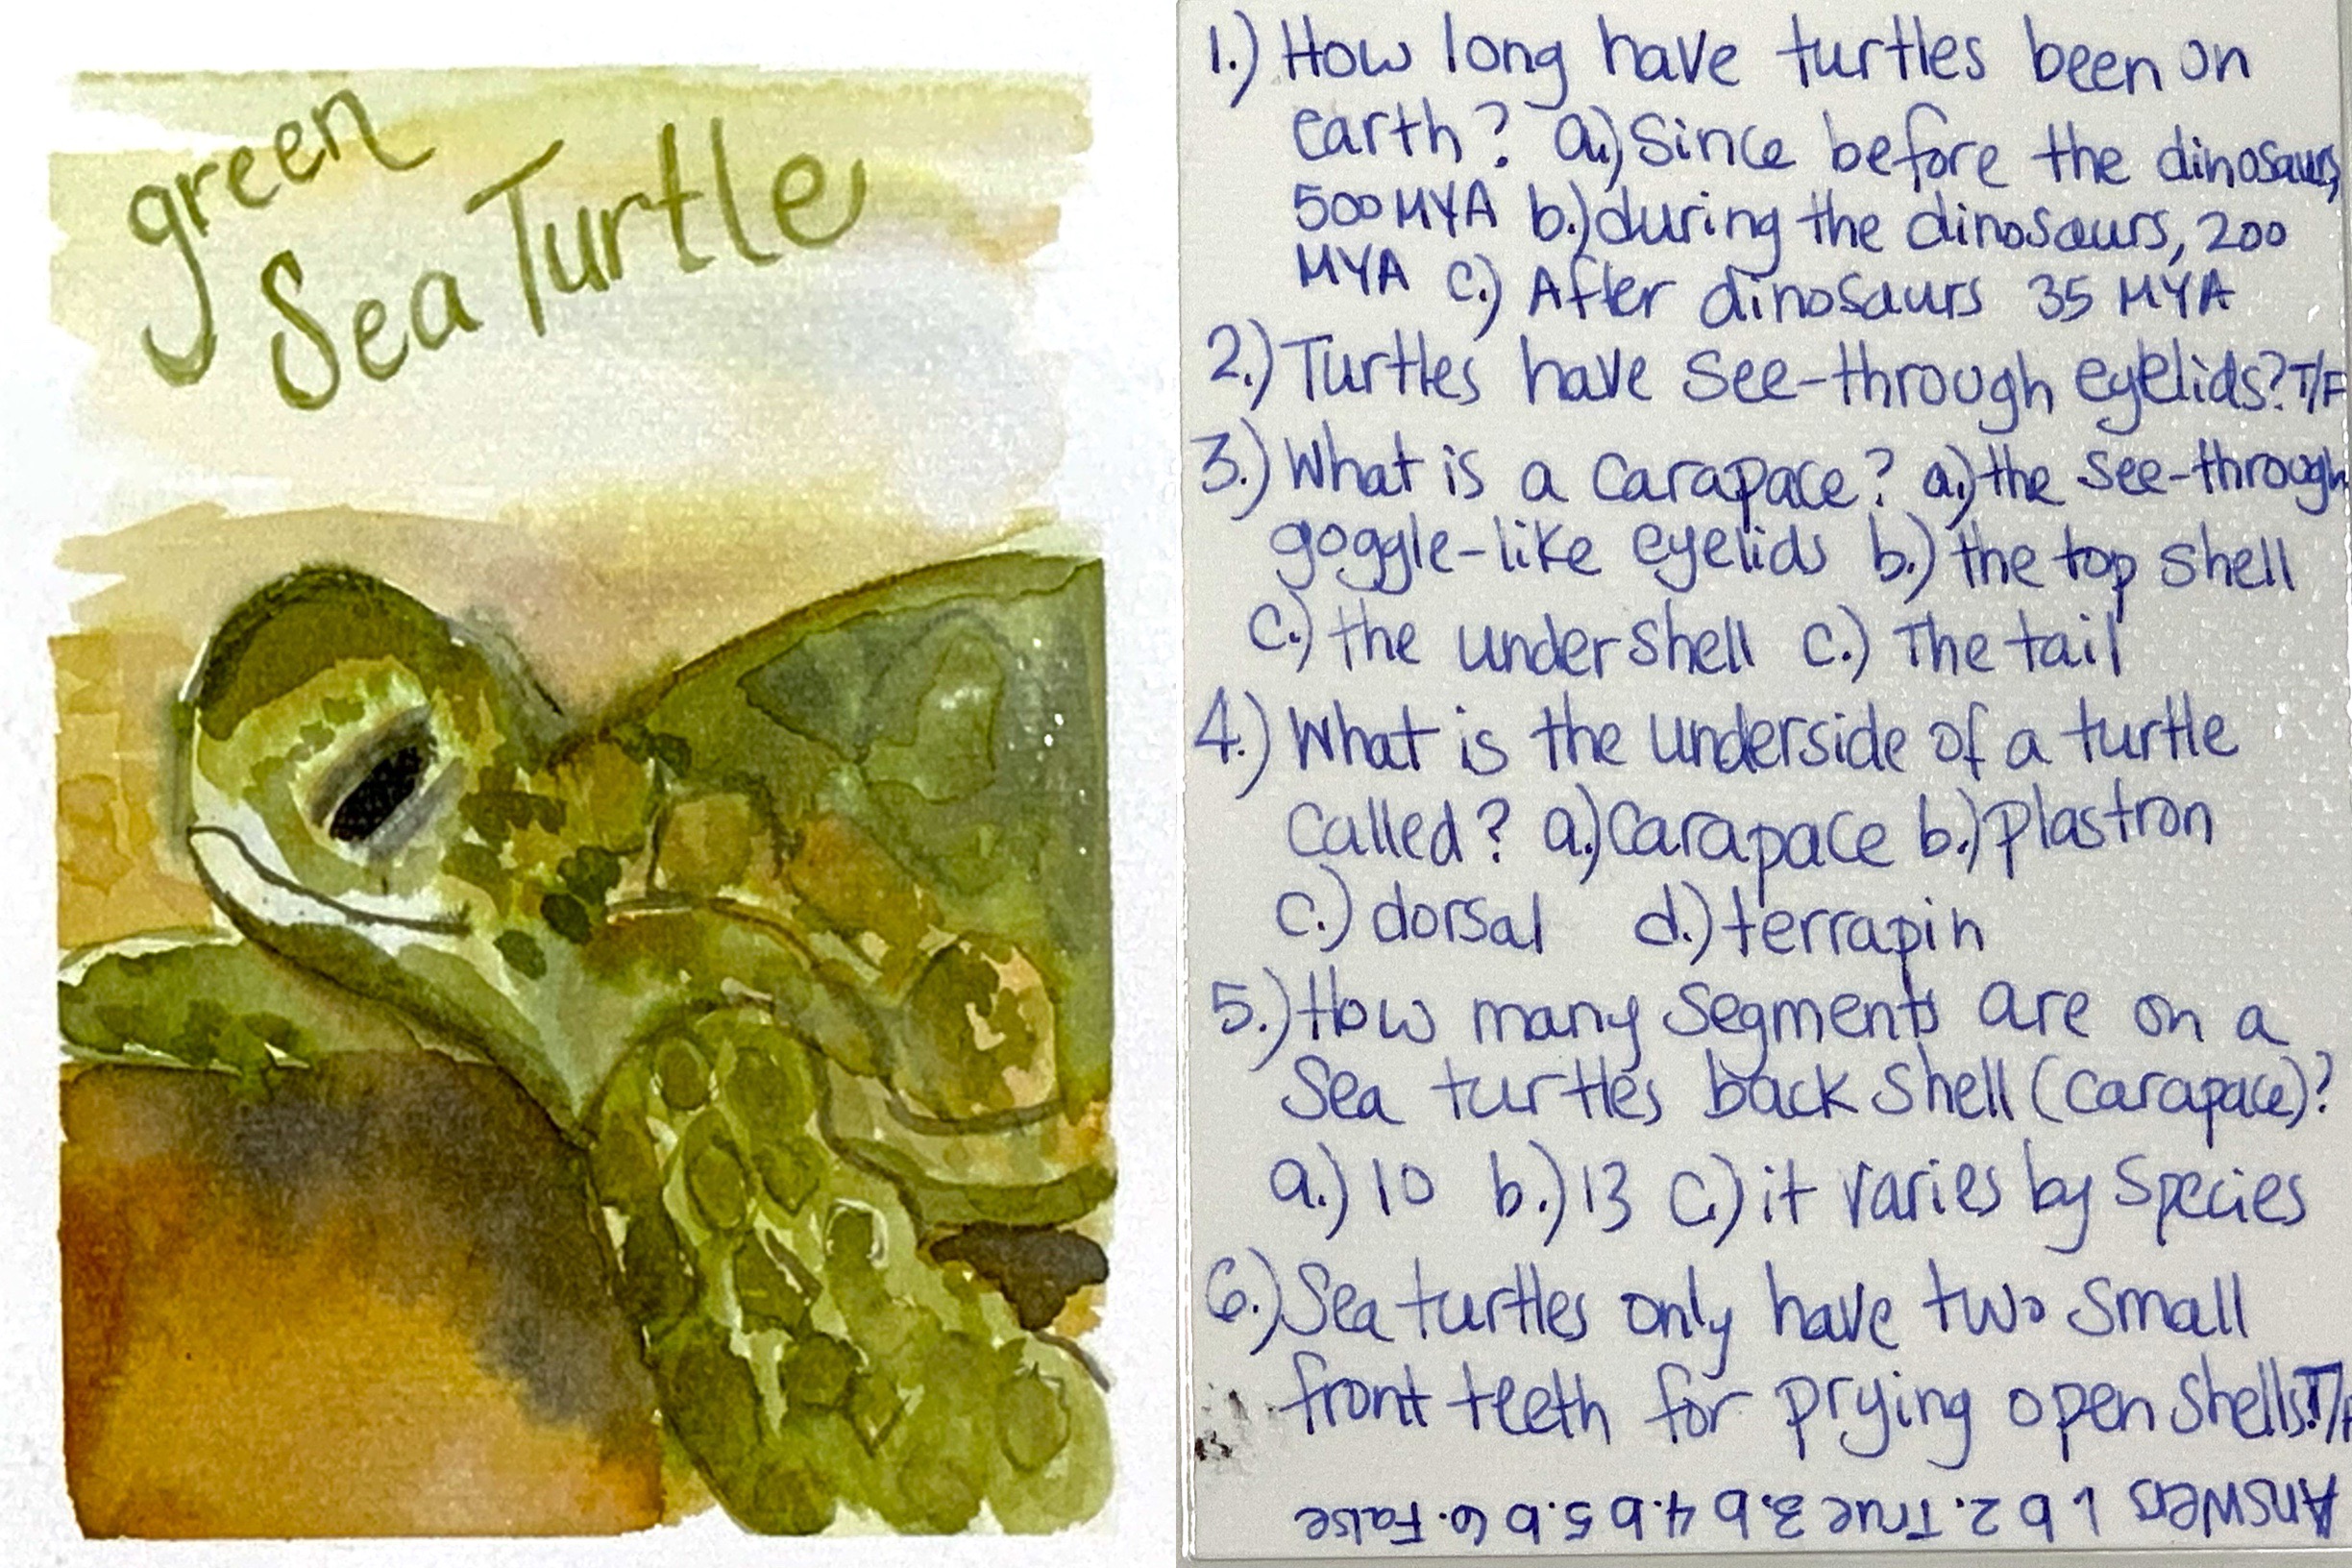 green
Sea Turtle
1.) How long have turtles been on
earth? a.) Since before the dinosaurs,
500 MYA b.) during the dinosaurs, 200
MYA c.) After dinosaurs 35 MYA
2.) Turtles have see-through eyelids? T/F
3.) What is a carapace? a.) the see-through
goggle-like eyelids b.) the top shell
c.) the under shell c.) The tail
4.) What is the underside of a turtle
called? a.) carapace b.) plastron
c.) dorsal d.) terrapin
5.) How many segments are on a
Sea turtles back shell (carapace)?
a.) 10 b.) 13 c.) it varies by species
6.) Sea turtles only have two small
front teeth for prying open shells. T/F
Answers 1. b 2. True 3. b 4. b 5. b 6. False